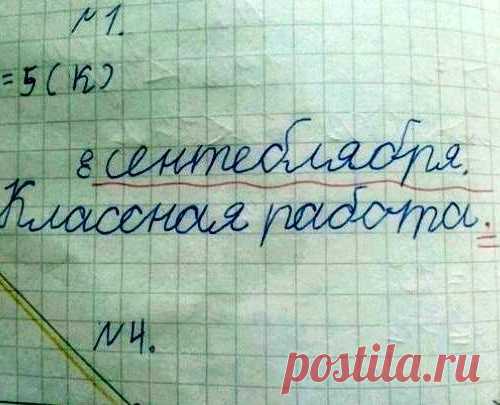 №1.
=5(К)
8 сентеблября.
Классная работа.
№4.
postila.ru